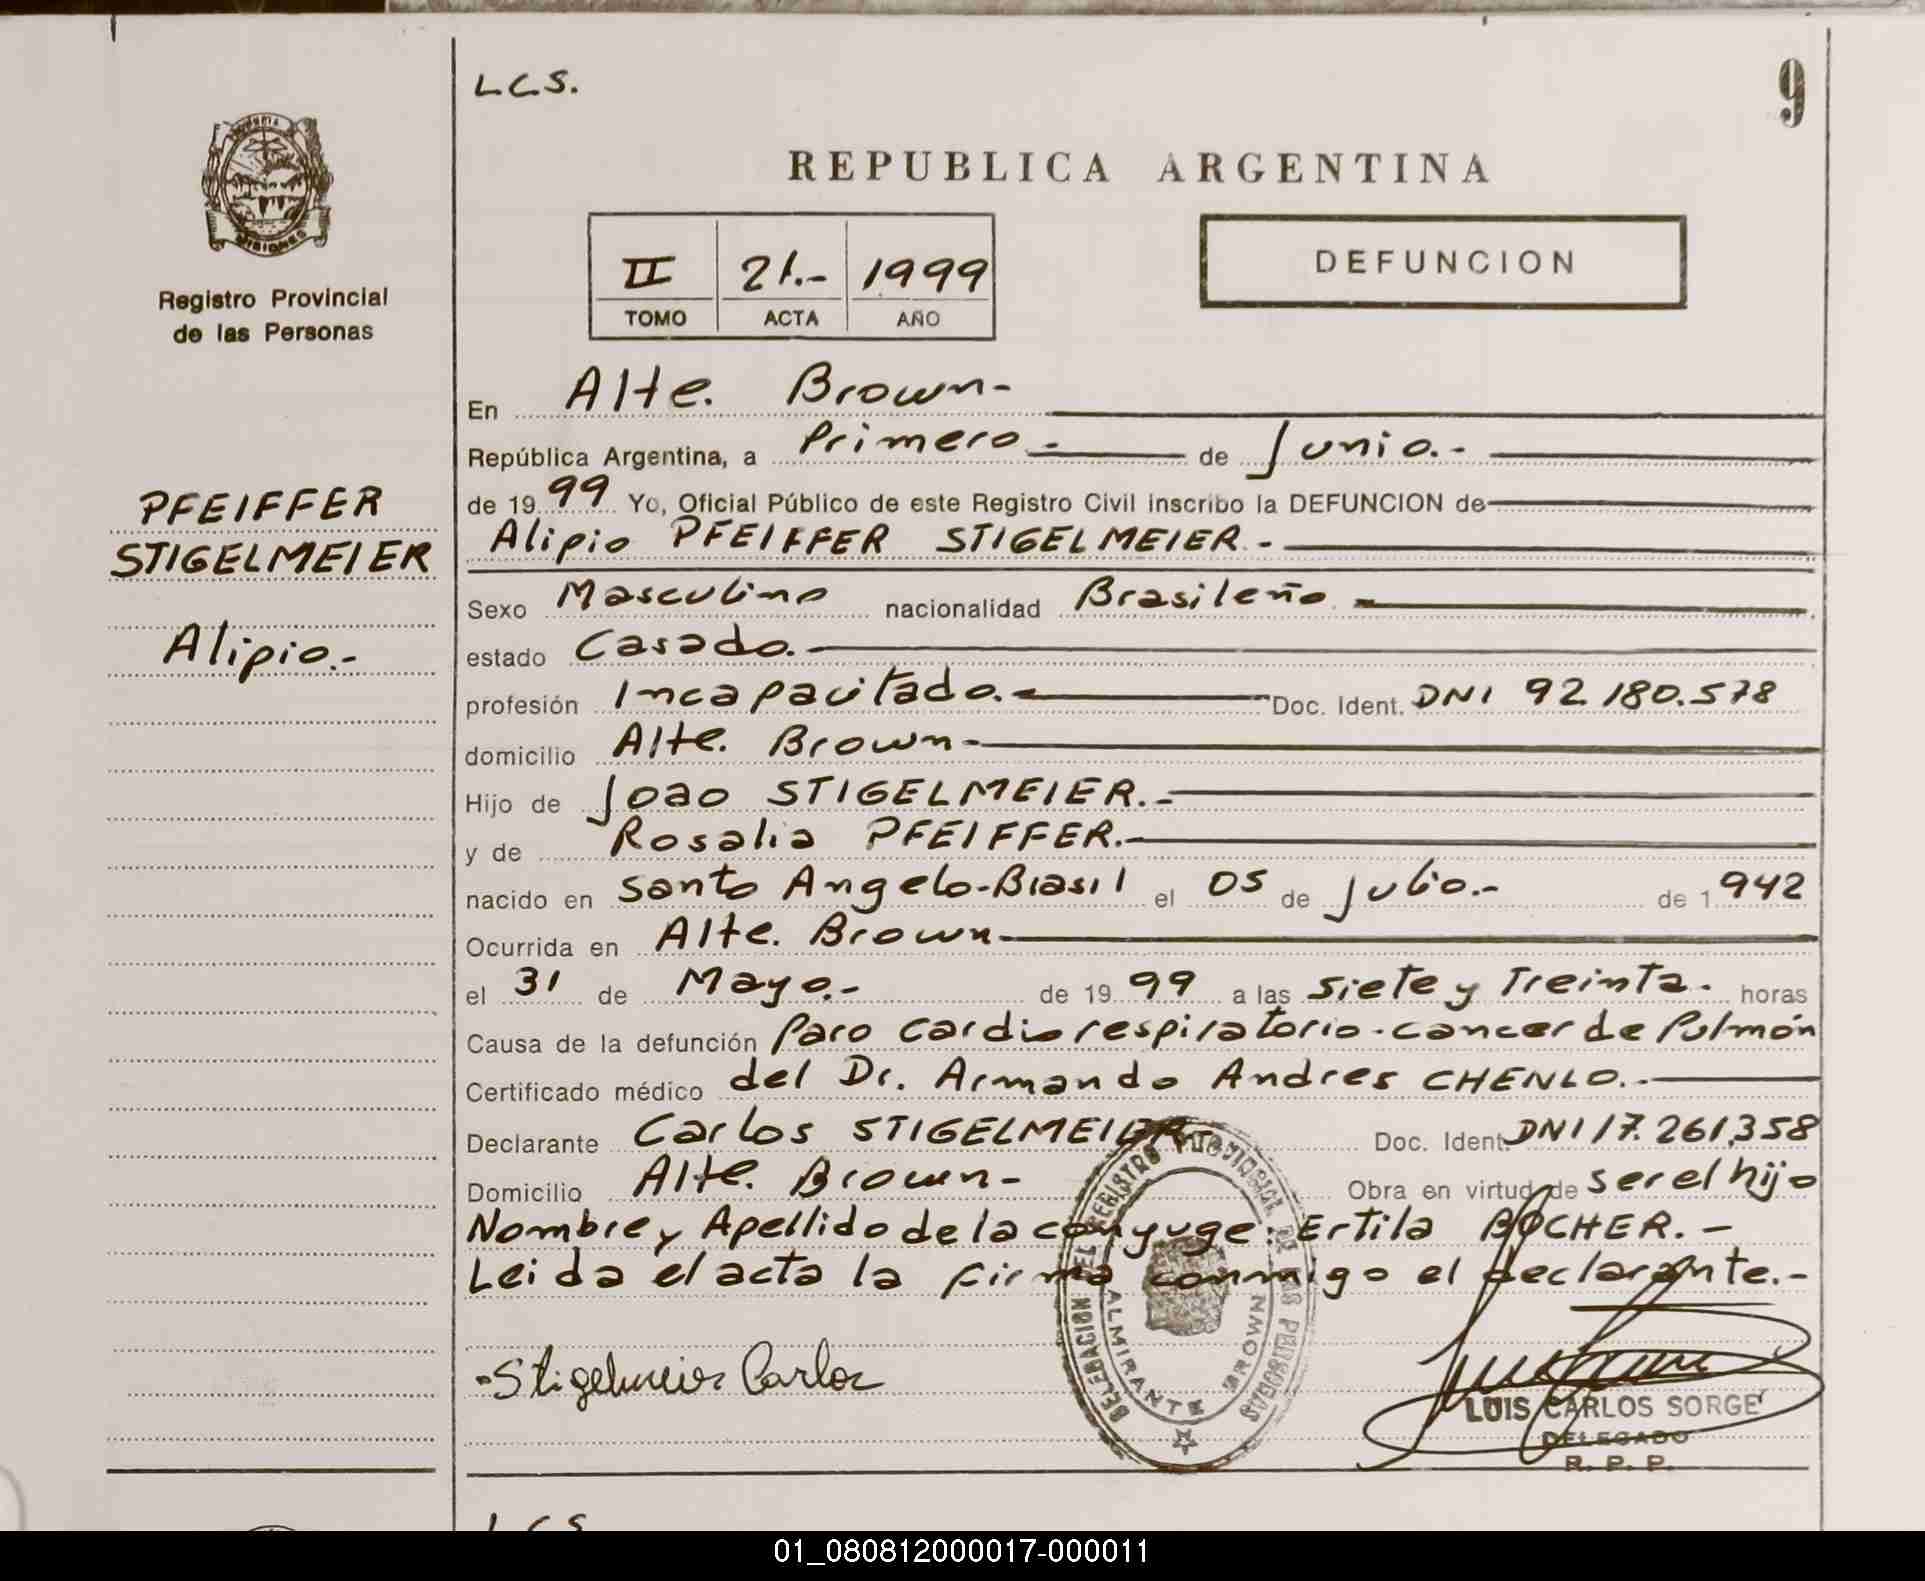 LCS.
9
REPUBLICA ARGENTINA
MISIONES
Registro Provincial
de las Personas
II 21.- 1999
TOMO ACTA AÑO
DEFUNCION
PFEIFFER
STIGELMEIER
Alipio.-
En Alte. Brown-
República Argentina, a Primero.- de Junio.-
de 19 99 Yo, Oficial Público de este Registro Civil inscribo la DEFUNCION de
Alipio PFEIFFER STIGELMEIER.-
Sexo Masculino nacionalidad Brasileño.-
estado Casado.-
profesión Incapacitado.- Doc. Ident. DNI 92.180.578
domicilio Alte. Brown-
Hijo de Joao STIGELMEIER.-
y de Rosalia PFEIFFER.-
nacido en Santo Angelo-Brasil el 05 de Julio.- de 1942
Ocurrida en Alte. Brown-
el 31 de Mayo.- de 19 99 a las siete y Treinta. horas
Causa de la defunción Paro cardiorespiratorio-cancer de Pulmón
Certificado médico del Dr. Armando Andres CHENLO.-
Declarante Carlos STIGELMEIER Doc. Ident. DNI 17.261.358
Domicilio Alte. Brown- Obra en virtud de ser el hijo
Nombre y Apellido de la conyuge: Ertila BOCHER.-
Leida el acta la firma conmigo el declarante.-
DELEGACION DEL REGISTRO PROVINCIAL DE LAS PERSONAS
ALMIRANTE BROWN
-Stigelmeier Carlos
LUIS CARLOS SORGE
DELEGADO
R. P. P.
LCS
01_080812000017-000011